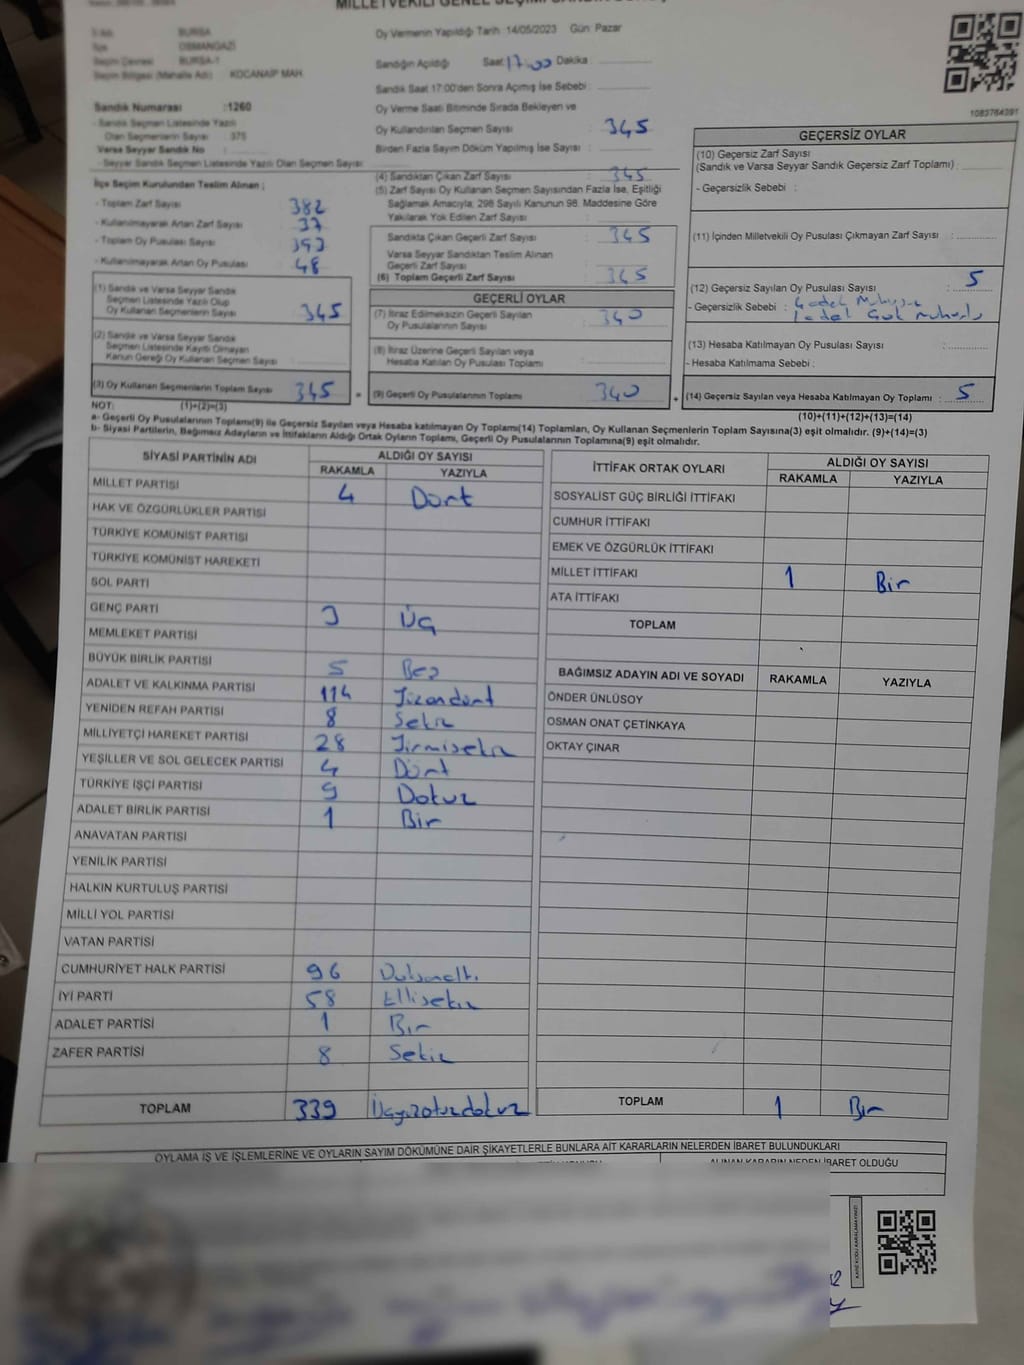 MİLLETVEKİLİ GENEL SEÇİMİ SANDIK
BURSA
OSMANGAZİ
BURSA-1
Seçim Bölgesi (Mahalle Adı) : KOCANAİP MAH.
Sandık Numarası :1260
- Sandık Seçmen Listesinde Yazılı
Olan Seçmenlerin Sayısı : 375
Varsa Seyyar Sandık No :
- Seyyar Sandık Seçmen Listesinde Yazılı Olan Seçmen Sayısı :
İlçe Seçim Kurulundan Teslim Alınan ;
- Toplam Zarf Sayısı : 382
- Kullanılmayarak Artan Zarf Sayısı : 37
- Toplam Oy Pusulası Sayısı : 393
- Kullanılmayarak Artan Oy Pusulası : 48
(1) Sandık ve Varsa Seyyar Sandık
Seçmen Listesinde Yazılı Olup
Oy Kullanan Seçmenlerin Sayısı : 345
(2) Sandık ve Varsa Seyyar Sandık
Seçmen Listesinde Kayıtlı Olmayan
Kanun Gereği Oy Kullanan Seçmen Sayısı :
(3) Oy Kullanan Seçmenlerin Toplam Sayısı : 345
Oy Vermenin Yapıldığı Tarih :14/05/2023 Gün: Pazar
Sandığın Açıldığı Saat: 17:00 Dakika :
Sandık Saat 17:00'den Sonra Açılmış İse Sebebi :
Oy Verme Saati Bitiminde Sırada Bekleyen ve
Oy Kullandırılan Seçmen Sayısı : 345
Birden Fazla Sayım Döküm Yapılmış İse Sayısı :
(4) Sandıktan Çıkan Zarf Sayısı : 345
(5) Zarf Sayısı Oy Kullanan Seçmen Sayısından Fazla İse, Eşitliği
Sağlamak Amacıyla; 298 Sayılı Kanunun 98. Maddesine Göre
Yakılarak Yok Edilen Zarf Sayısı :
Sandıkta Çıkan Geçerli Zarf Sayısı : 345
Varsa Seyyar Sandıktan Teslim Alınan
Geçerli Zarf Sayısı :
(6) Toplam Geçerli Zarf Sayısı : 345
GEÇERLİ OYLAR
(7) İtiraz Edilmeksizin Geçerli Sayılan
Oy Pusulalarının Sayısı : 340
(8) İtiraz Üzerine Geçerli Sayılan veya
Hesaba Katılan Oy Pusulası Toplamı :
(9) Geçerli Oy Pusulalarının Toplamı : 340
1083764391
GEÇERSİZ OYLAR
(10) Geçersiz Zarf Sayısı
(Sandık ve Varsa Seyyar Sandık Geçersiz Zarf Toplamı) :
- Geçersizlik Sebebi :
(11) İçinden Milletvekili Oy Pusulası Çıkmayan Zarf Sayısı :
(12) Geçersiz Sayılan Oy Pusulası Sayısı : 5
- Geçersizlik Sebebi : 4 adet
1 adet
(13) Hesaba Katılmayan Oy Pusulası Sayısı :
- Hesaba Katılmama Sebebi :
(14) Geçersiz Sayılan veya Hesaba Katılmayan Oy Toplamı : 5
NOT: (1)+(2)=(3) (10)+(11)+(12)+(13)=(14)
a- Geçerli Oy Pusulalarının Toplamı(9) ile Geçersiz Sayılan veya Hesaba katılmayan Oy Toplamı(14) Toplamları, Oy Kullanan Seçmenlerin Toplam Sayısına(3) eşit olmalıdır. (9)+(14)=(3)
b- Siyasi Partilerin, Bağımsız Adayların ve İttifakların Aldığı Ortak Oyların Toplamı, Geçerli Oy Pusulalarının Toplamına(9) eşit olmalıdır.
SİYASİ PARTİNİN ADI ALDIĞI OY SAYISI
RAKAMLA YAZIYLA
MİLLET PARTİSİ 4 Dört
HAK VE ÖZGÜRLÜKLER PARTİSİ
TÜRKİYE KOMÜNİST PARTİSİ
TÜRKİYE KOMÜNİST HAREKETİ
SOL PARTİ
GENÇ PARTİ 3 Üç
MEMLEKET PARTİSİ
BÜYÜK BİRLİK PARTİSİ 5 Beş
ADALET VE KALKINMA PARTİSİ 114 Yüzondört
YENİDEN REFAH PARTİSİ 8 Sekiz
MİLLİYETÇİ HAREKET PARTİSİ 28 Yirmisekiz
YEŞİLLER VE SOL GELECEK PARTİSİ 4 Dört
TÜRKİYE İŞÇİ PARTİSİ 9 Dokuz
ADALET BİRLİK PARTİSİ 1 Bir
ANAVATAN PARTİSİ
YENİLİK PARTİSİ
HALKIN KURTULUŞ PARTİSİ
MİLLİ YOL PARTİSİ
VATAN PARTİSİ
CUMHURİYET HALK PARTİSİ 96 Doksanaltı
İYİ PARTİ 58 Ellisekiz
ADALET PARTİSİ 1 Bir
ZAFER PARTİSİ 8 Sekiz
TOPLAM 339 Üçyüzotuzdokuz
İTTİFAK ORTAK OYLARI ALDIĞI OY SAYISI
RAKAMLA YAZIYLA
SOSYALİST GÜÇ BİRLİĞİ İTTİFAKI
CUMHUR İTTİFAKI
EMEK VE ÖZGÜRLÜK İTTİFAKI
MİLLET İTTİFAKI 1 Bir
ATA İTTİFAKI
TOPLAM
BAĞIMSIZ ADAYIN ADI VE SOYADI RAKAMLA YAZIYLA
ÖNDER ÜNLÜSOY
OSMAN ONAT ÇETİNKAYA
OKTAY ÇINAR
TOPLAM 1 Bir
OYLAMA İŞ VE İŞLEMLERİNE VE OYLARIN SAYIM DÖKÜMÜNE DAİR ŞİKAYETLERLE BUNLARA AİT KARARLARIN NELERDEN İBARET BULUNDUKLARI
ALINAN KARARIN NEDEN İBARET OLDUĞU
KARE KODU KARALAMAYINIZ!